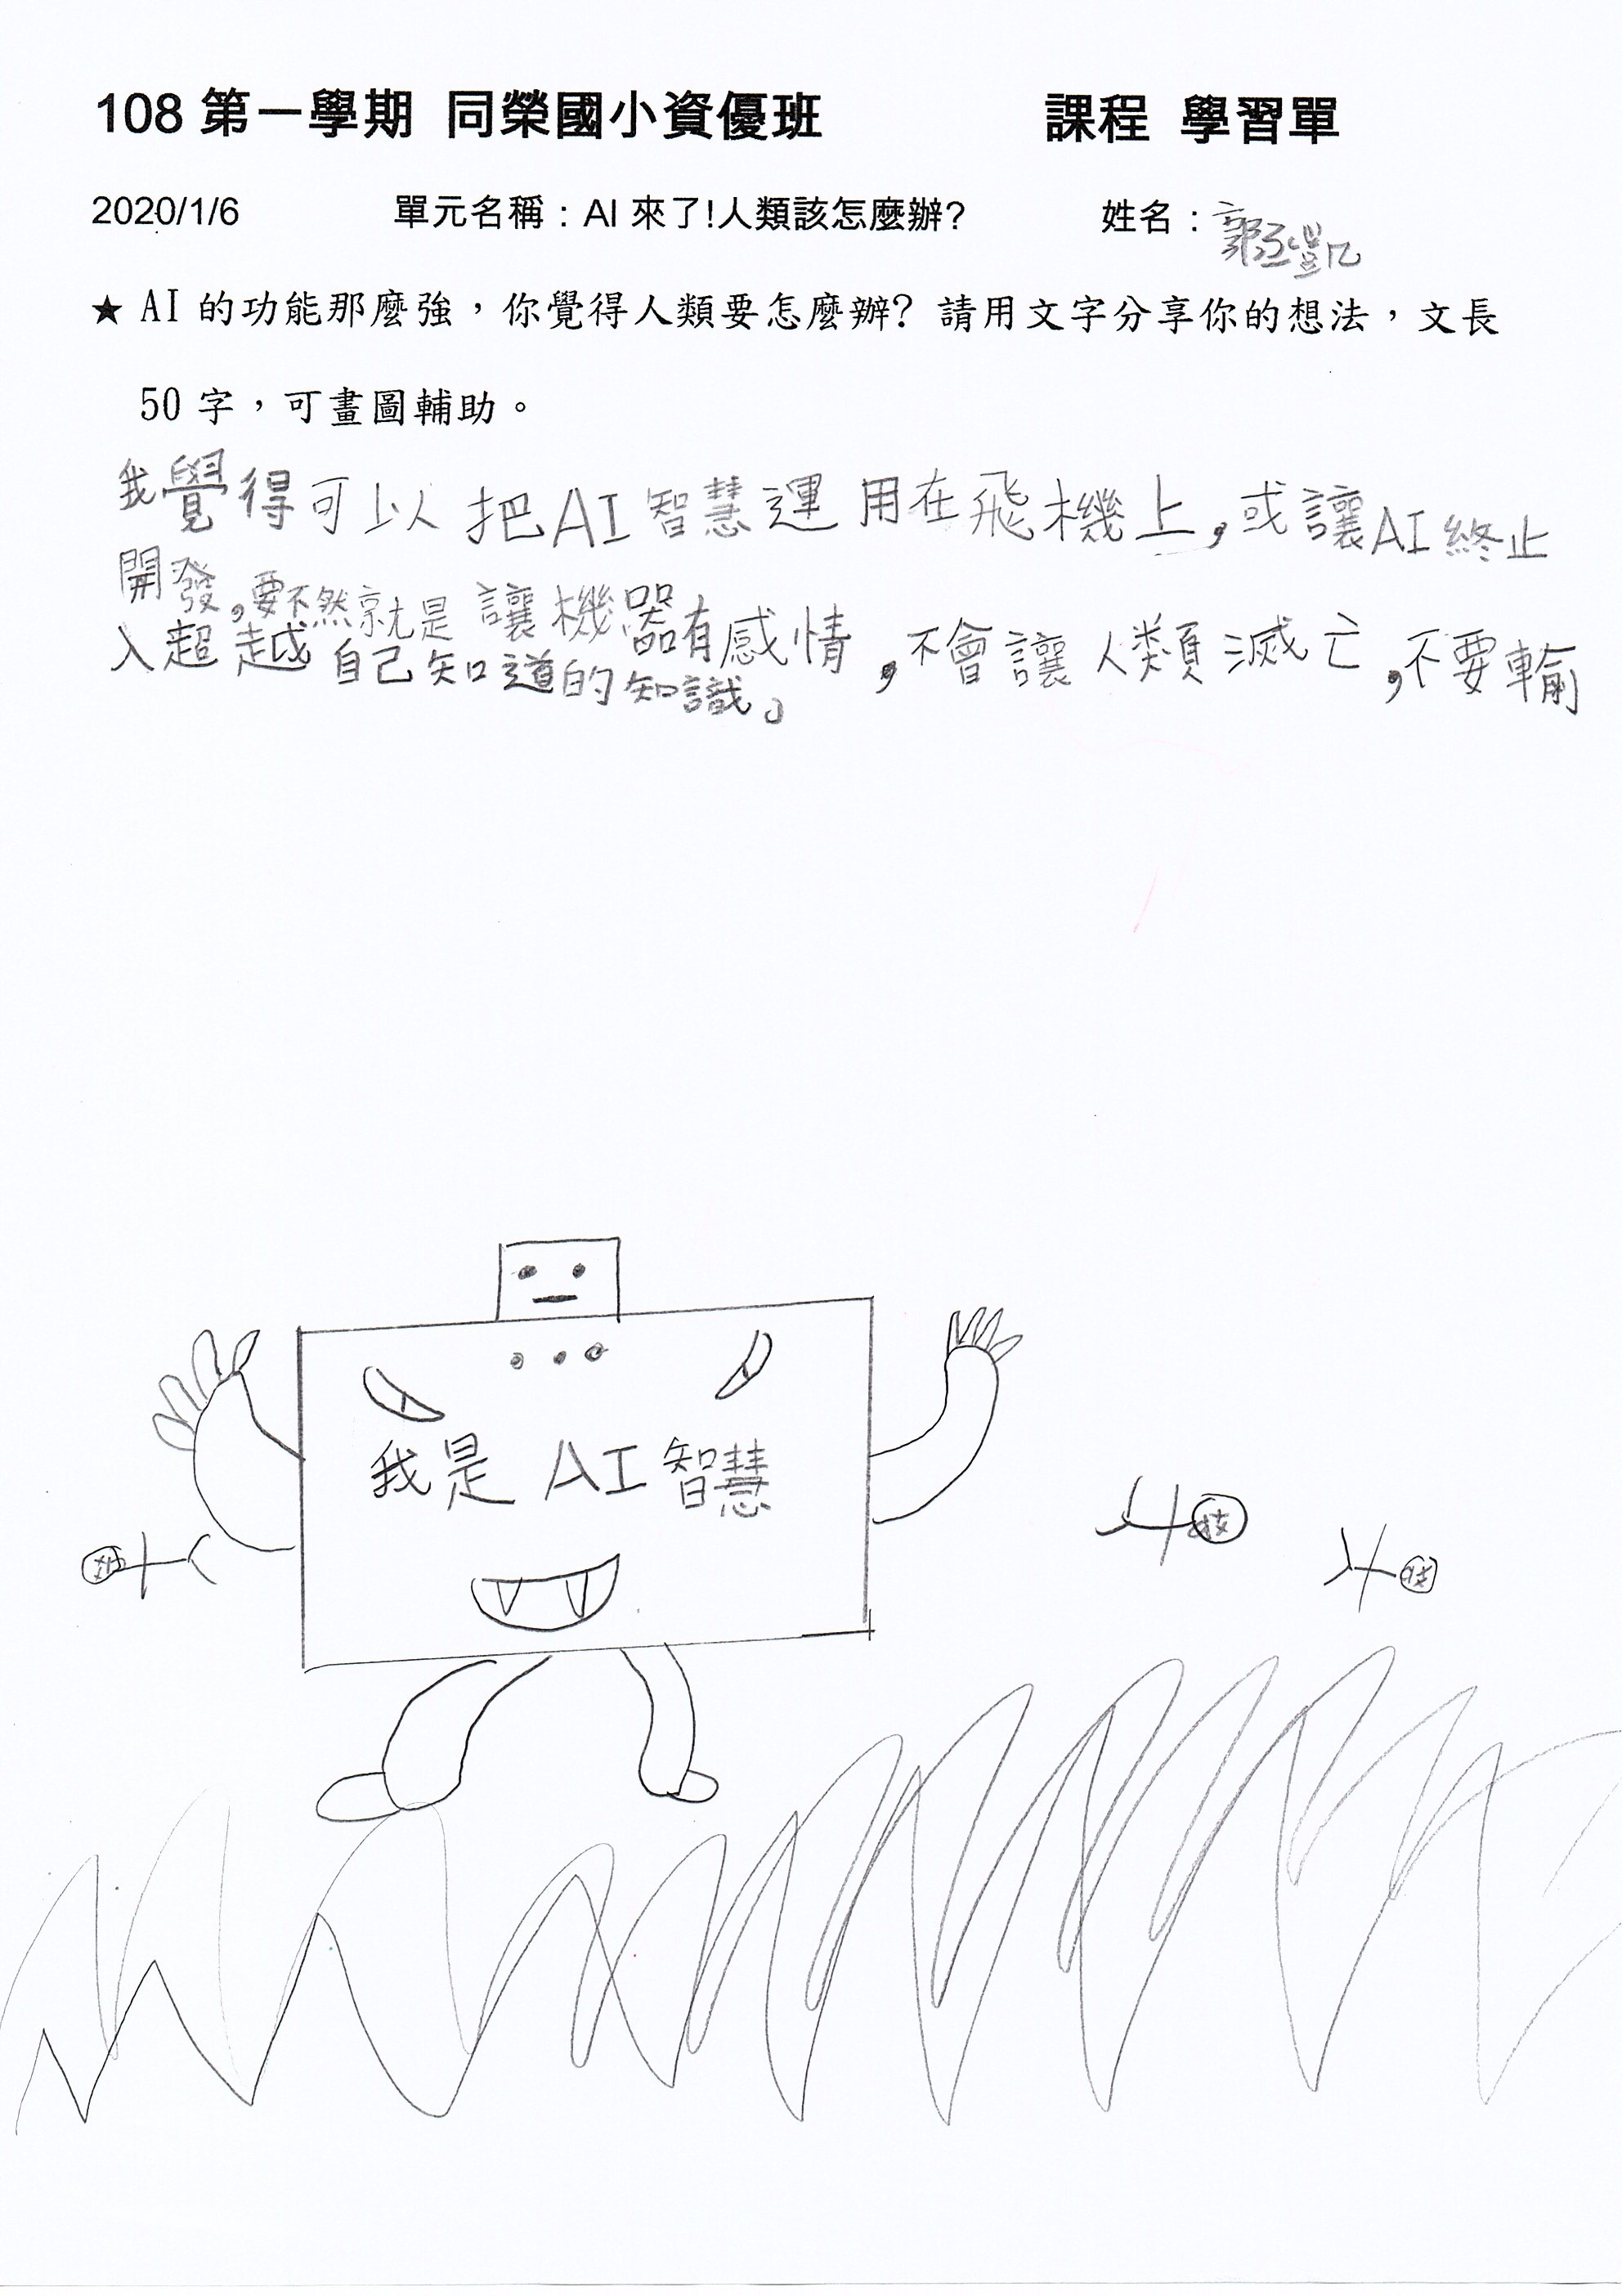 108 第一學期 同榮國小資優班 課程 學習單
2020/1/6 單元名稱：AI 來了!人類該怎麼辦? 姓名：郭亞凱
★ AI 的功能那麼強，你覺得人類要怎麼辦? 請用文字分享你的想法，文長
50 字，可畫圖輔助。
我覺得可以把AI智慧運用在飛機上，或讓AI終止
開發，要不然就是讓機器有感情，不會讓人類滅亡，不要輸
入超越自己知道的知識。
我是 AI 智慧
技
技